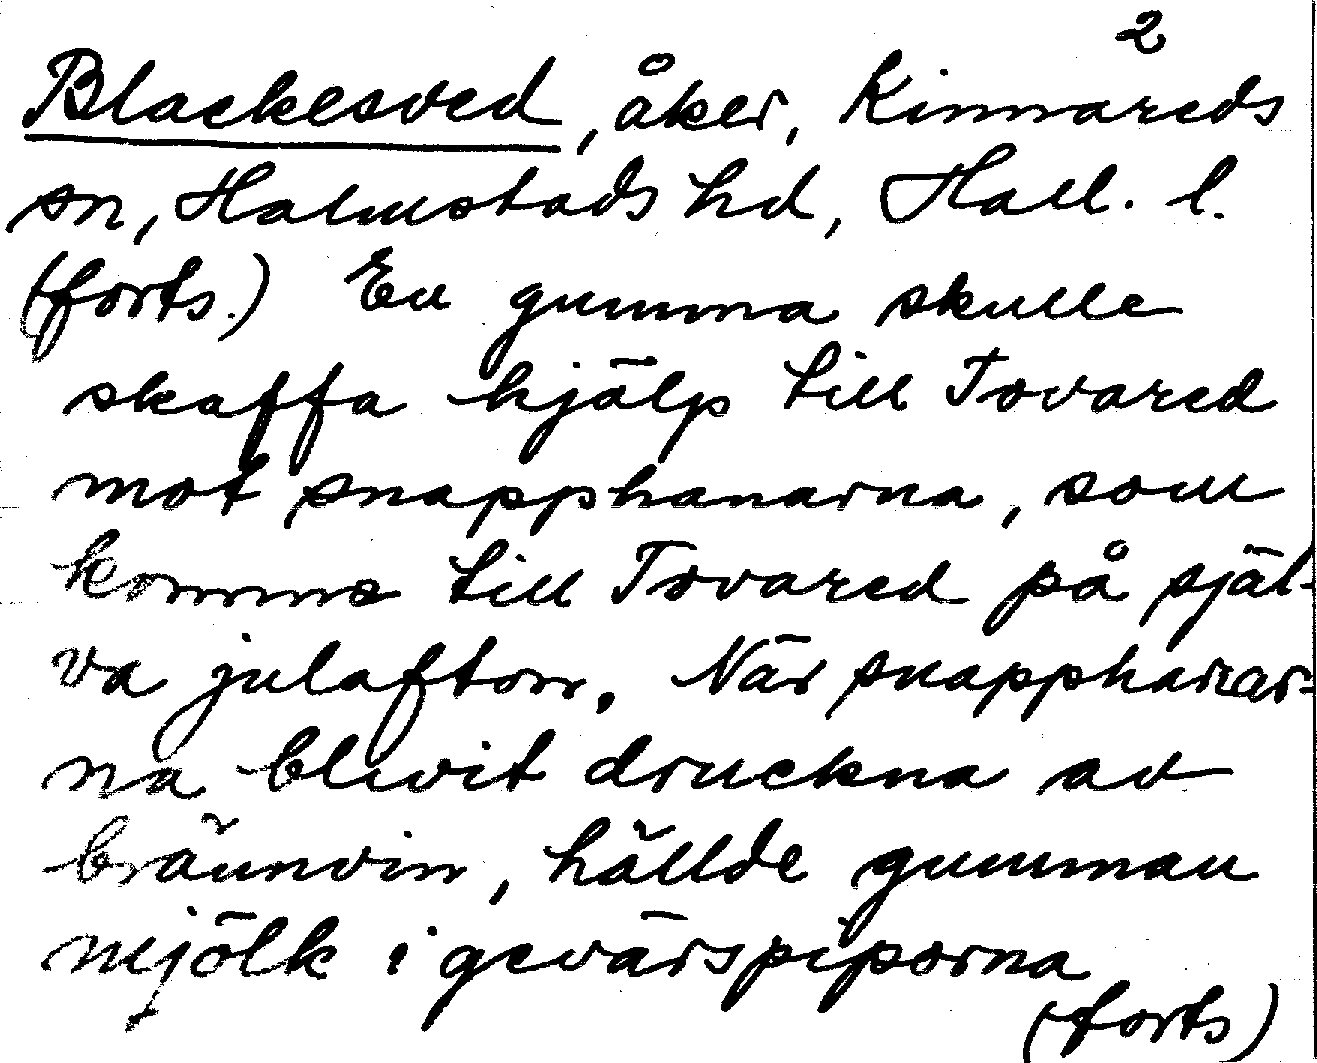 2
Blackesved, åker, Kinnareds
sn, Halmstads hd, Hall. l.
(forts.) En gumma skulle
skaffa hjälp till Tovared
mot snapphanarna, som
komms till Tovared på själ-
va julafton. När snapphanar-
na blivit druckna av
brännvin, hällde gumman
mjölk i gevärspiporna
(forts)